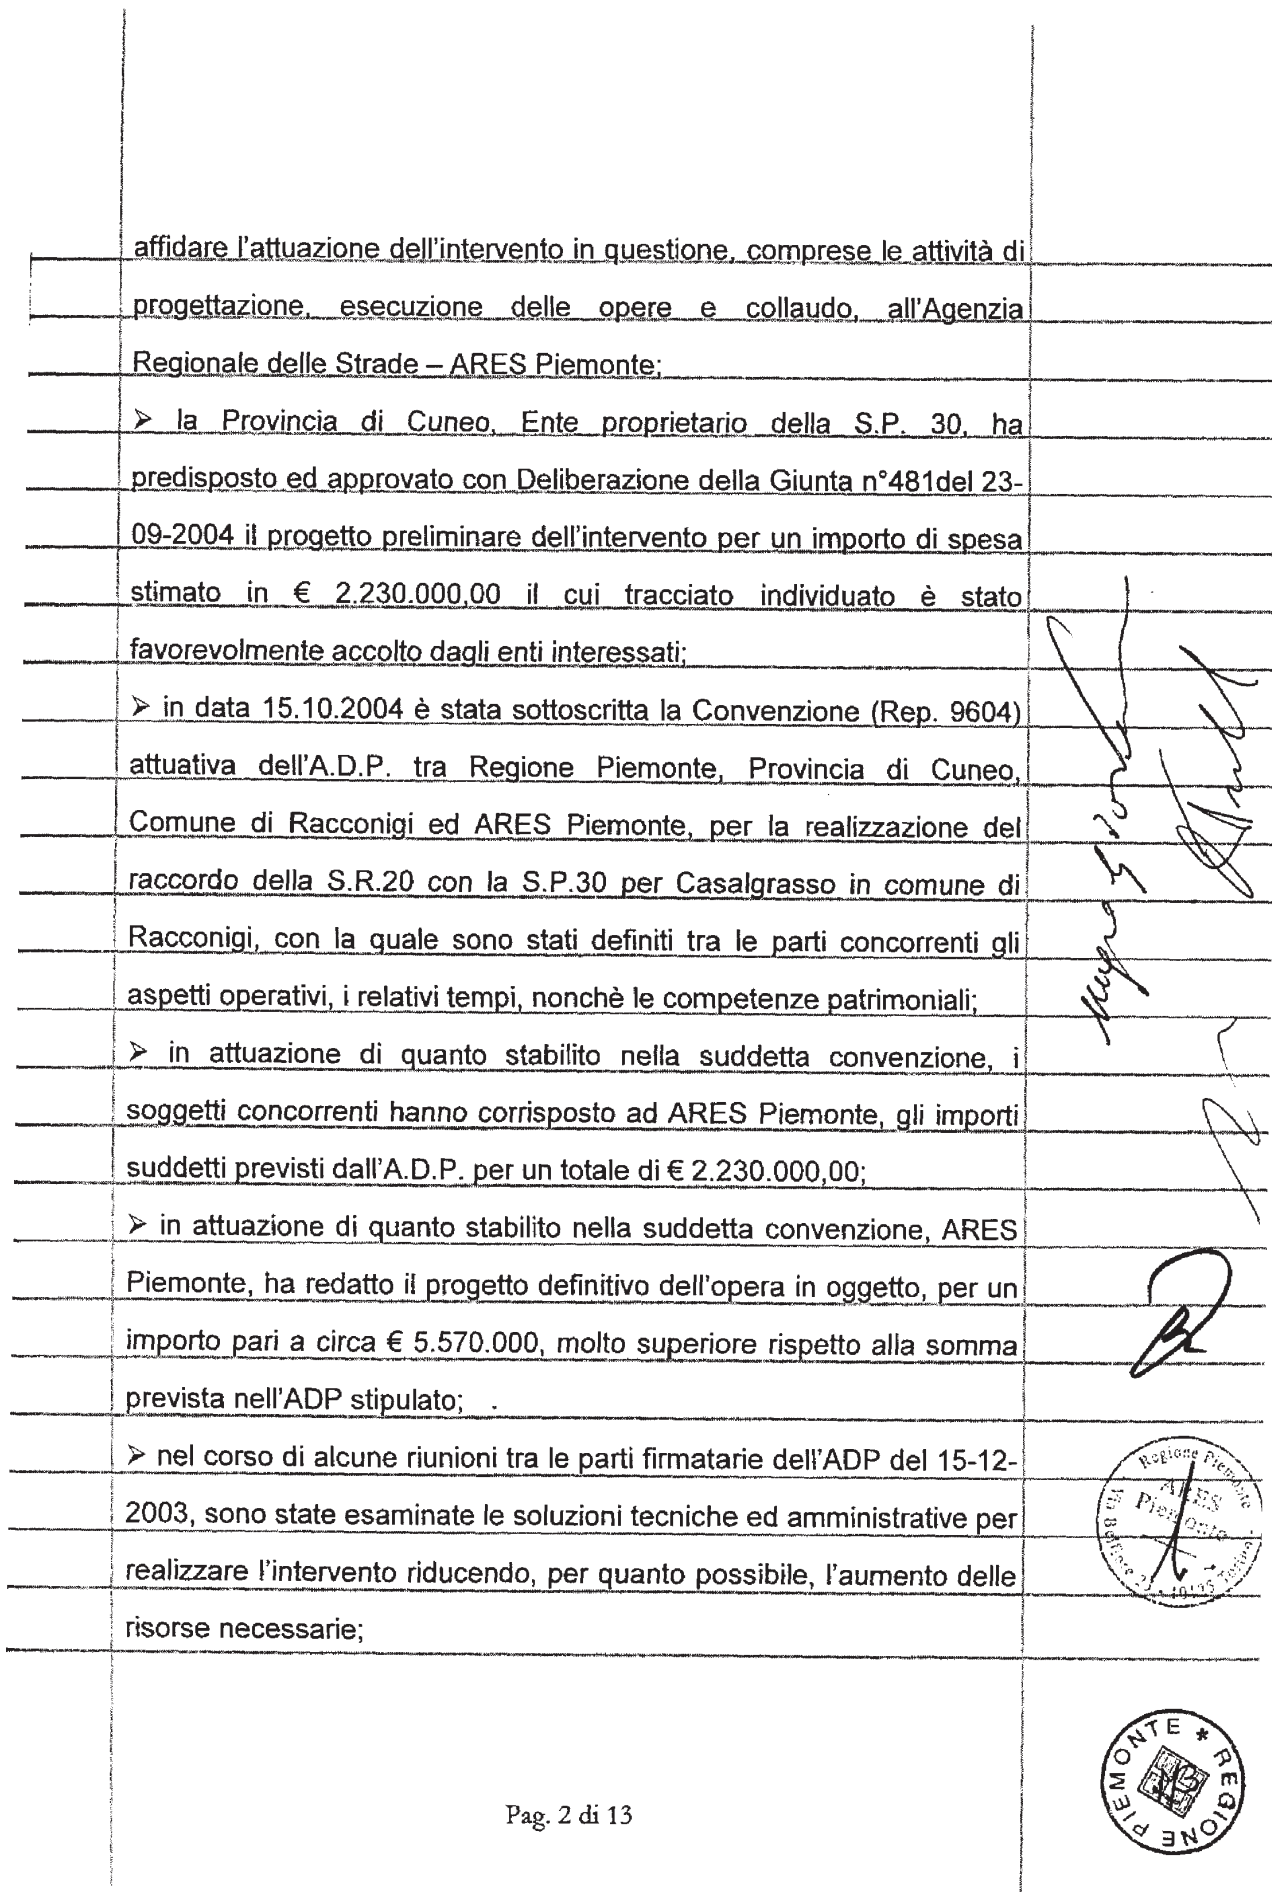 affidare l'attuazione dell'intervento in questione, comprese le attività di
progettazione, esecuzione delle opere e collaudo, all'Agenzia
Regionale delle Strade – ARES Piemonte;
➢ la Provincia di Cuneo, Ente proprietario della S.P. 30, ha
predisposto ed approvato con Deliberazione della Giunta n°481del 23-
09-2004 il progetto preliminare dell'intervento per un importo di spesa
stimato in € 2.230.000,00 il cui tracciato individuato è stato
favorevolmente accolto dagli enti interessati;
➢ in data 15.10.2004 è stata sottoscritta la Convenzione (Rep. 9604)
attuativa dell'A.D.P. tra Regione Piemonte, Provincia di Cuneo,
Comune di Racconigi ed ARES Piemonte, per la realizzazione del
raccordo della S.R.20 con la S.P.30 per Casalgrasso in comune di
Racconigi, con la quale sono stati definiti tra le parti concorrenti gli
aspetti operativi, i relativi tempi, nonchè le competenze patrimoniali;
➢ in attuazione di quanto stabilito nella suddetta convenzione, i
soggetti concorrenti hanno corrisposto ad ARES Piemonte, gli importi
suddetti previsti dall'A.D.P. per un totale di € 2.230.000,00;
➢ in attuazione di quanto stabilito nella suddetta convenzione, ARES
Piemonte, ha redatto il progetto definitivo dell'opera in oggetto, per un
importo pari a circa € 5.570.000, molto superiore rispetto alla somma
prevista nell'ADP stipulato;
➢ nel corso di alcune riunioni tra le parti firmatarie dell'ADP del 15-12-
2003, sono state esaminate le soluzioni tecniche ed amministrative per
realizzare l'intervento riducendo, per quanto possibile, l'aumento delle
risorse necessarie;
Regione Piemonte
ARES
Piemonte
REGIONE PIEMONTE *
Pag. 2 di 13